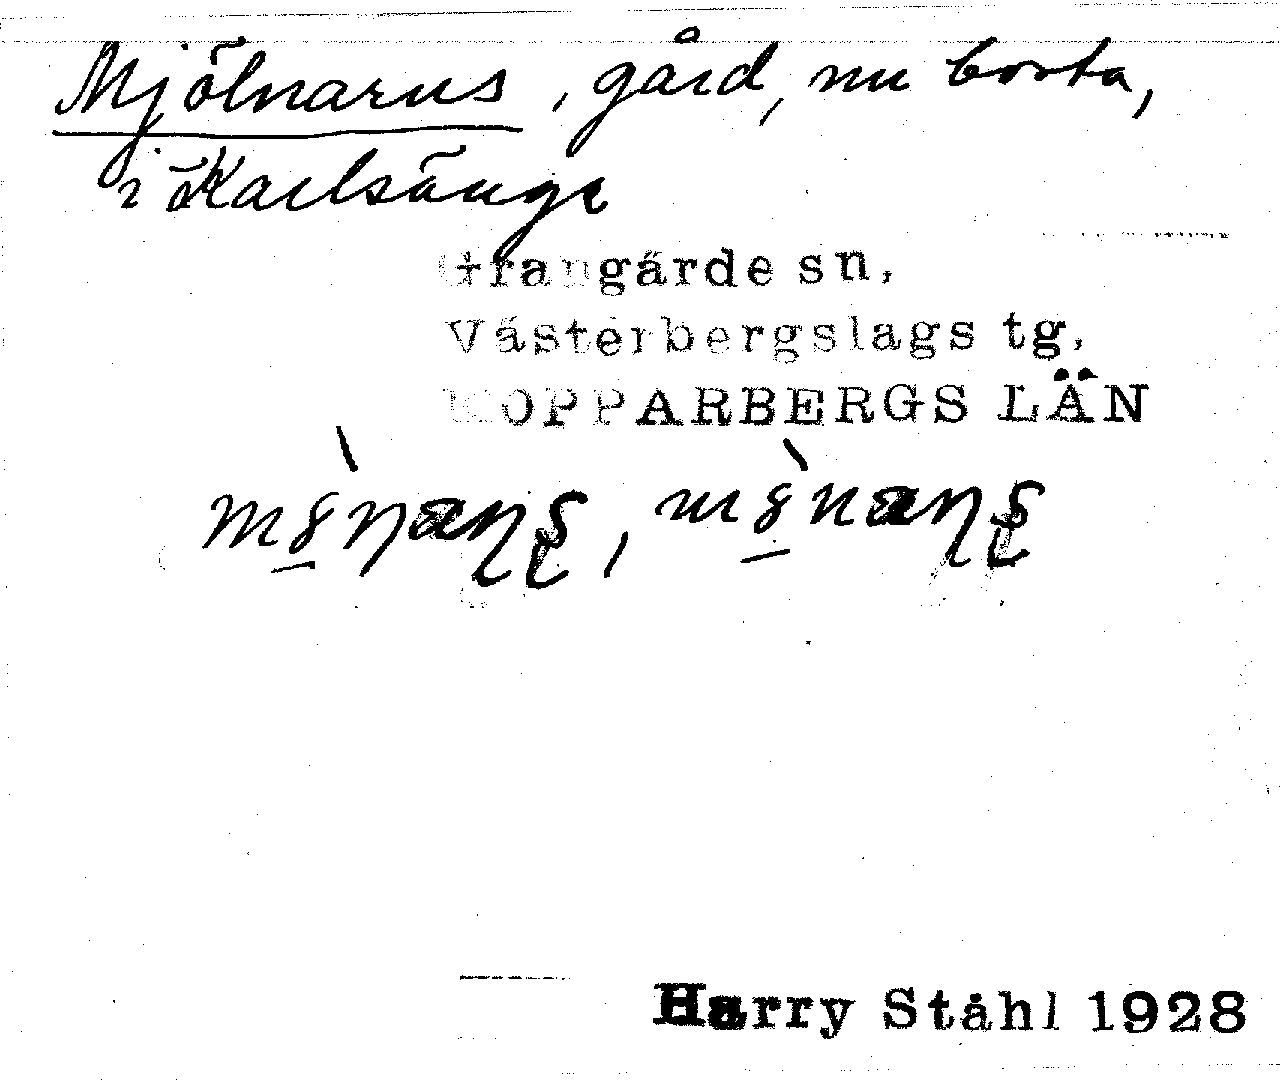 Mjölnarus, gård, nu borta,
i Ö Karlsänge
Grangärde sn,
Västerbergslags tg,
KOPPARBERGS LÄN
Harry Ståhl 1928